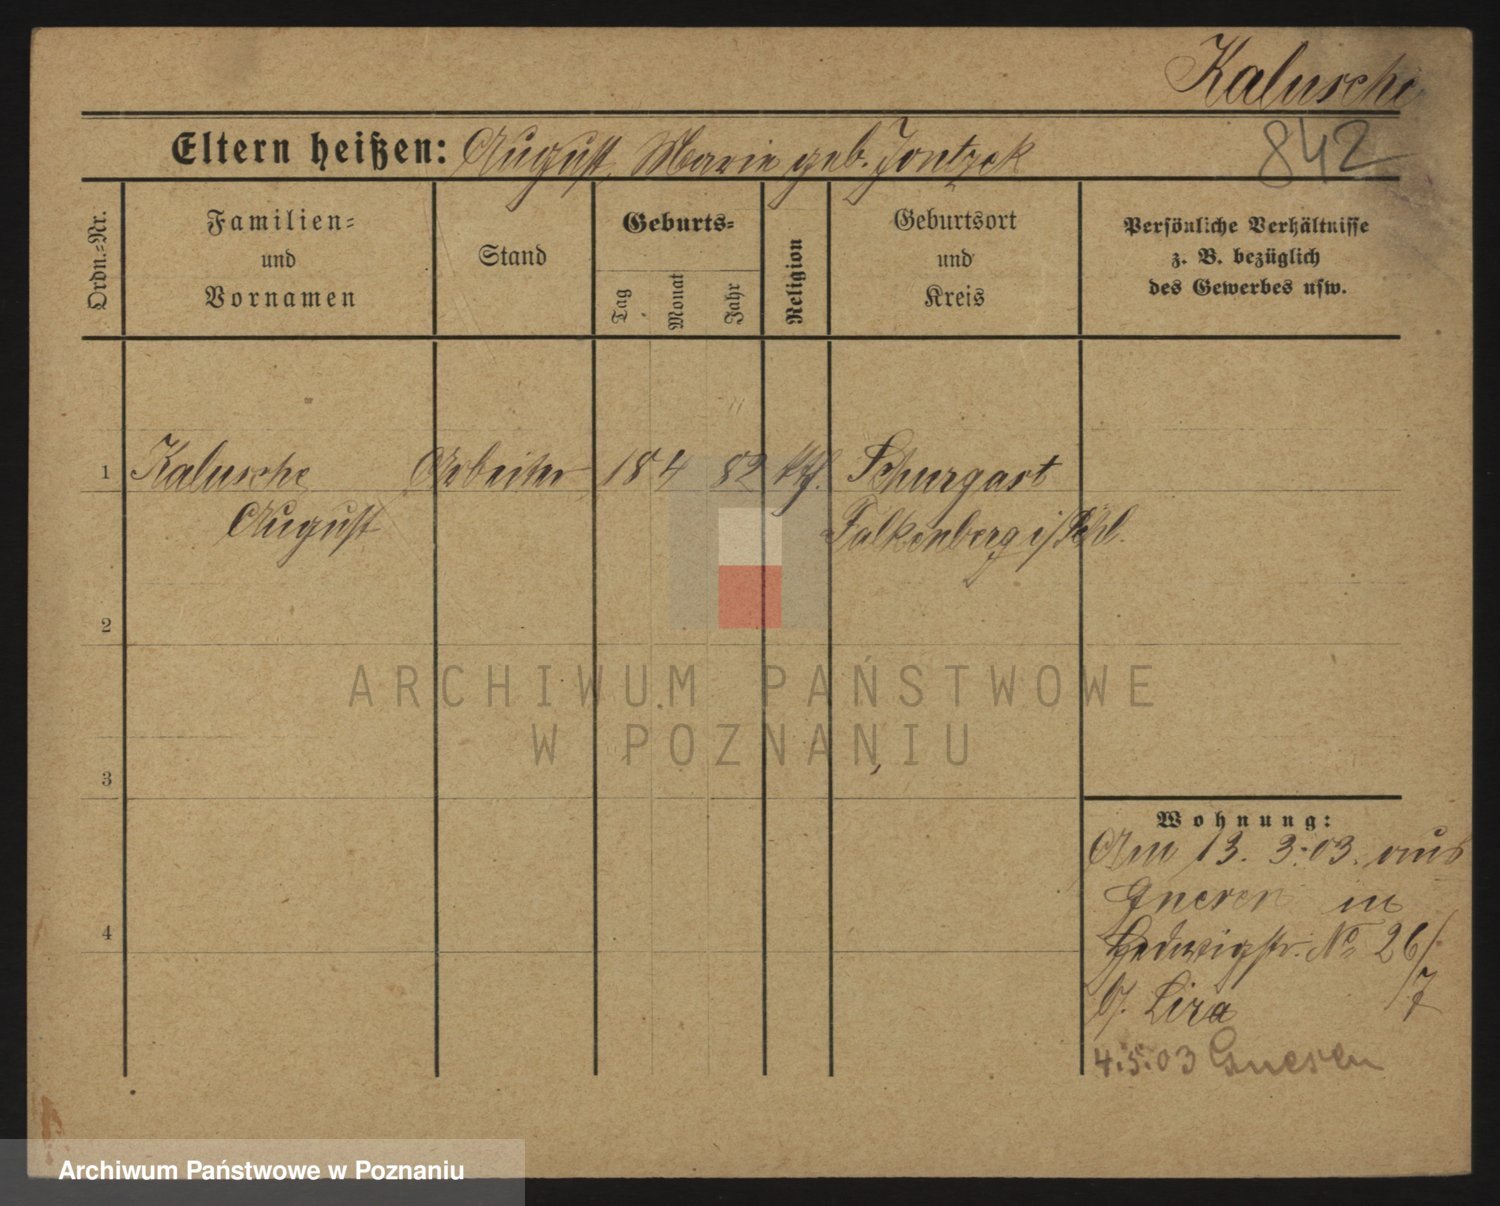 Kalusche
842
Eltern heißen: August, Marie geb. Jontzek
Ordn.-Nr.
Familien-
und
Vornamen
Stand
Geburts-
Tag
Monat
Jahr
Religion
Geburtsort
und
Kreis
Persönliche Verhältnisse
z. B. bezüglich
des Gewerbes usw.
1 Kalusche Arbeiter 18 4 82 kth. Schurgast
August Falkenberg i/Schl.
2
3
4
ARCHIWUM PAŃSTWOWE
W POZNANIU
Wohnung:
Am 13. 3. 03. aus
Gnesen in
Hedwigstr. No 26/
7
b/. Lira
4.5.03 Gnesen
Archiwum Państwowe w Poznaniu